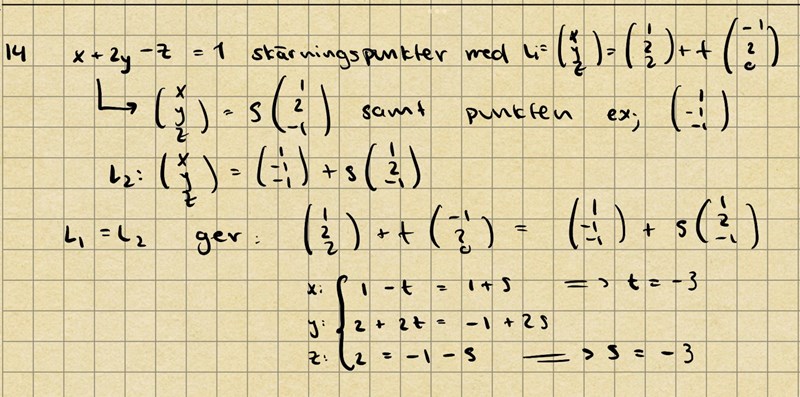 14 x + 2y - z = 1 skärningspunkter med L₁= (x y z) = (1 2 2) + t (-1 2 0)
(x y z) = s (1 2 -1) samt punkten ex; (1 -1 -1)
L₂: (x y z) = (1 -1 -1) + s (1 2 -1)
L₁ = L₂ ger: (1 2 2) + t (-1 2 0) = (1 -1 -1) + s (1 2 -1)
x: 1 - t = 1 + s => t = -3
y: 2 + 2t = -1 + 2s
z: 2 = -1 - s => s = -3